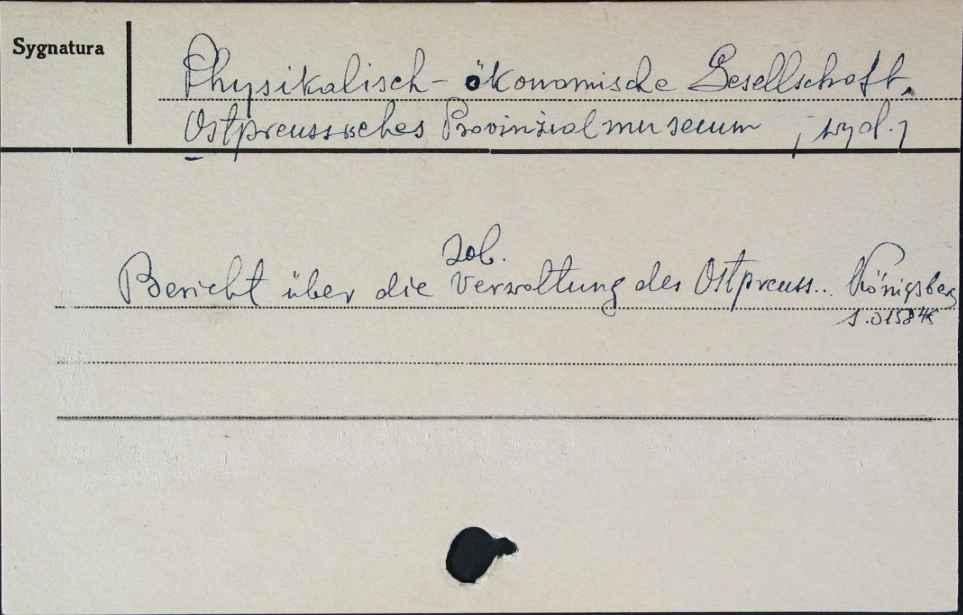 Sygnatura
Physikalisch-ökonomische Gesellschaft.
Ostpreussisches Provinzialmuseum , wyd.
zob.
Bericht über die Verwaltung des Ostpreuss.. Königsberg